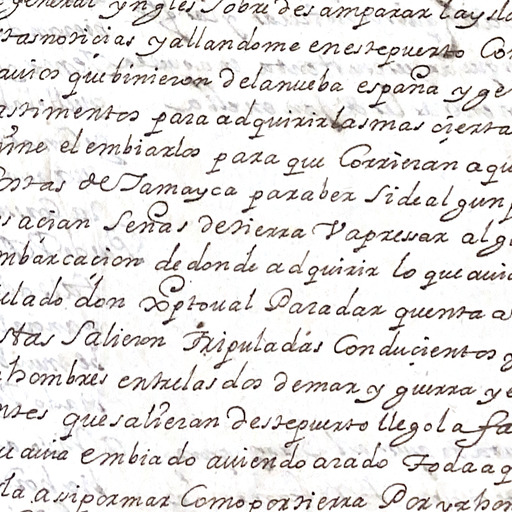 general yngles sobre desamparar la ysla
tas noticias y allandome en este puerto Con
auios que binieron de la nueba españa y ge
astimentos para adquirir las mas cierta
ine el embiarlos para que Corrieran aqu
ntas de Jamayca para ber si de algun p
s acian señas de tierra Vapressar alg
mbarcacion de donde adquirir lo que auia
ulado don xptoual Para dar quenta a
stas salieron tripuladas Con ducientos y
hombres entre las dos de mar y guerra y e
ntes que salieran deste puerto llego la fa
ue auia embiado auiendo arado toda aq
la assi por mar Como por tierra Por vn hon